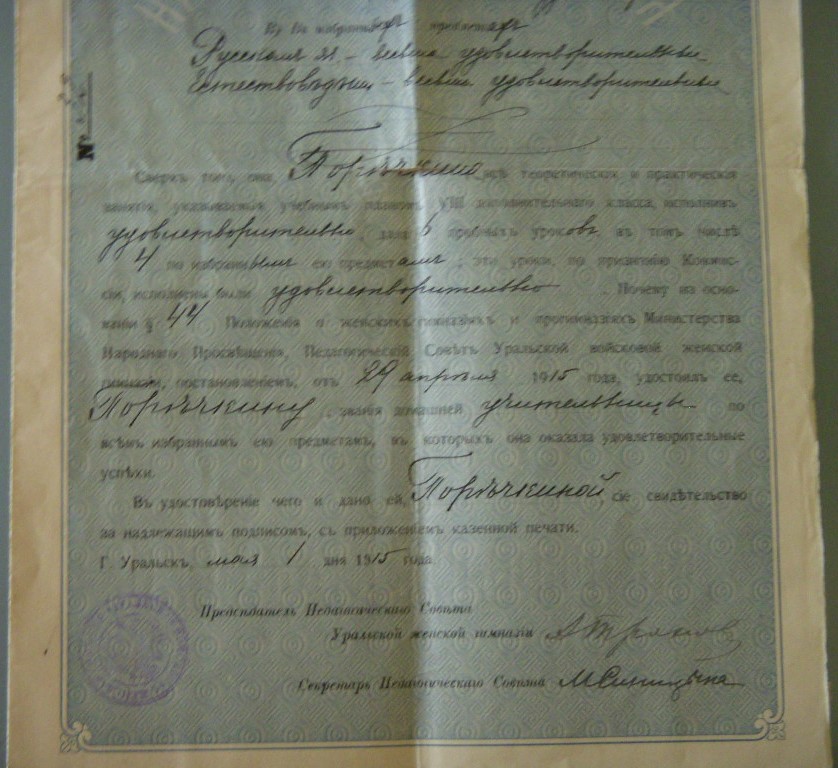 в) Въ избранныхъ предметахъ
Русскомъ яз. – весьма удовлетворительные
Естествовѣдѣніи – весьма удовлетворительные
№
Сверхъ того, она, Порѣчкина, всѣ теоретическія и практическія
занятія, указываемыя учебнымъ планомъ VIII дополнительнаго класса, исполнила
удовлетворительно, дала 6 пробныхъ уроковъ, въ томъ числѣ
4 по избраннымъ ею предметамъ; эти уроки, по признанію Комис-
сіи, исполнены были удовлетворительно. Почему на осно-
ваніи § 44 Положенія о женскихъ гимназіяхъ и прогимназіяхъ Министерства
Народнаго Просвѣщенія, Педагогическій Совѣтъ Уральской войсковой женской
гимназіи, постановленіемъ, отъ 29 апрѣля 1915 года, удостоилъ ее,
Порѣчкину, званія домашней учительницы по
всѣмъ избраннымъ ею предметамъ, въ которыхъ она оказала удовлетворительные
успѣхи.
Въ удостовѣреніе чего и дано ей, Порѣчкиной, сіе свидѣтельство
за надлежащимъ подписомъ, съ приложеніемъ казенной печати.
Г. Уральскъ, мая 1 дня 1915 года.
Предсѣдатель Педагогическаго Совѣта
Уральской женской гимназіи
Секретарь Педагогическаго Совѣта М Синицына